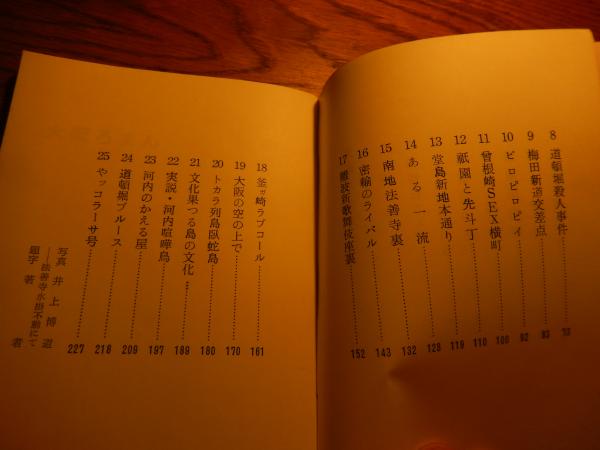 8 道頓堀殺人事件……73
9 梅田新道交差点……83
10 ピロピロピイ……92
11 曾根崎SEX横町……100
12 祇園と先斗丁……110
13 堂島新地本通り……119
14 ある一流……128
15 南地法善寺裏……132
16 密輸のライバル……143
17 難波新歌舞伎座裏……152
18 釜ガ崎ラブコール……161
19 大阪の空の上で……170
20 トカラ列島臥蛇島……180
21 文化果つる島の文化……189
22 実説・河内喧嘩鳥……197
23 河内のかえる屋……209
24 道頓堀ブルース……218
25 やッコラーサ号……227
写真 井上博道
——法善寺水掛不動にて
題字 著者